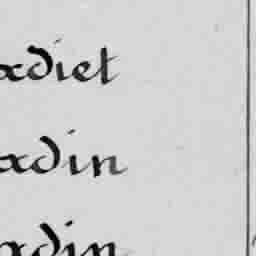 adiet
adin
adin